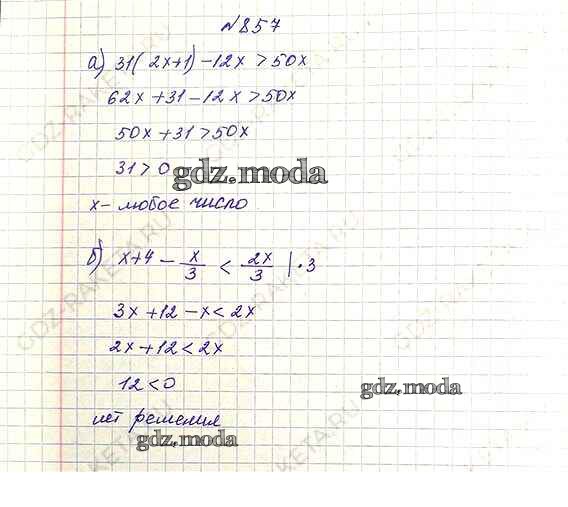 №857
а) 31(2x+1)-12x>50x
62x+31-12x>50x
50x+31>50x
31>0
gdz.moda
x- любое число
б) x+4 - x/3 < 2x/3 | · 3
3x+12-x<2x
2x+12<2x
12<0
gdz.moda
нет решения
gdz.moda
GDZ-RAKETA.RU
GDZ-RAKETA.RU